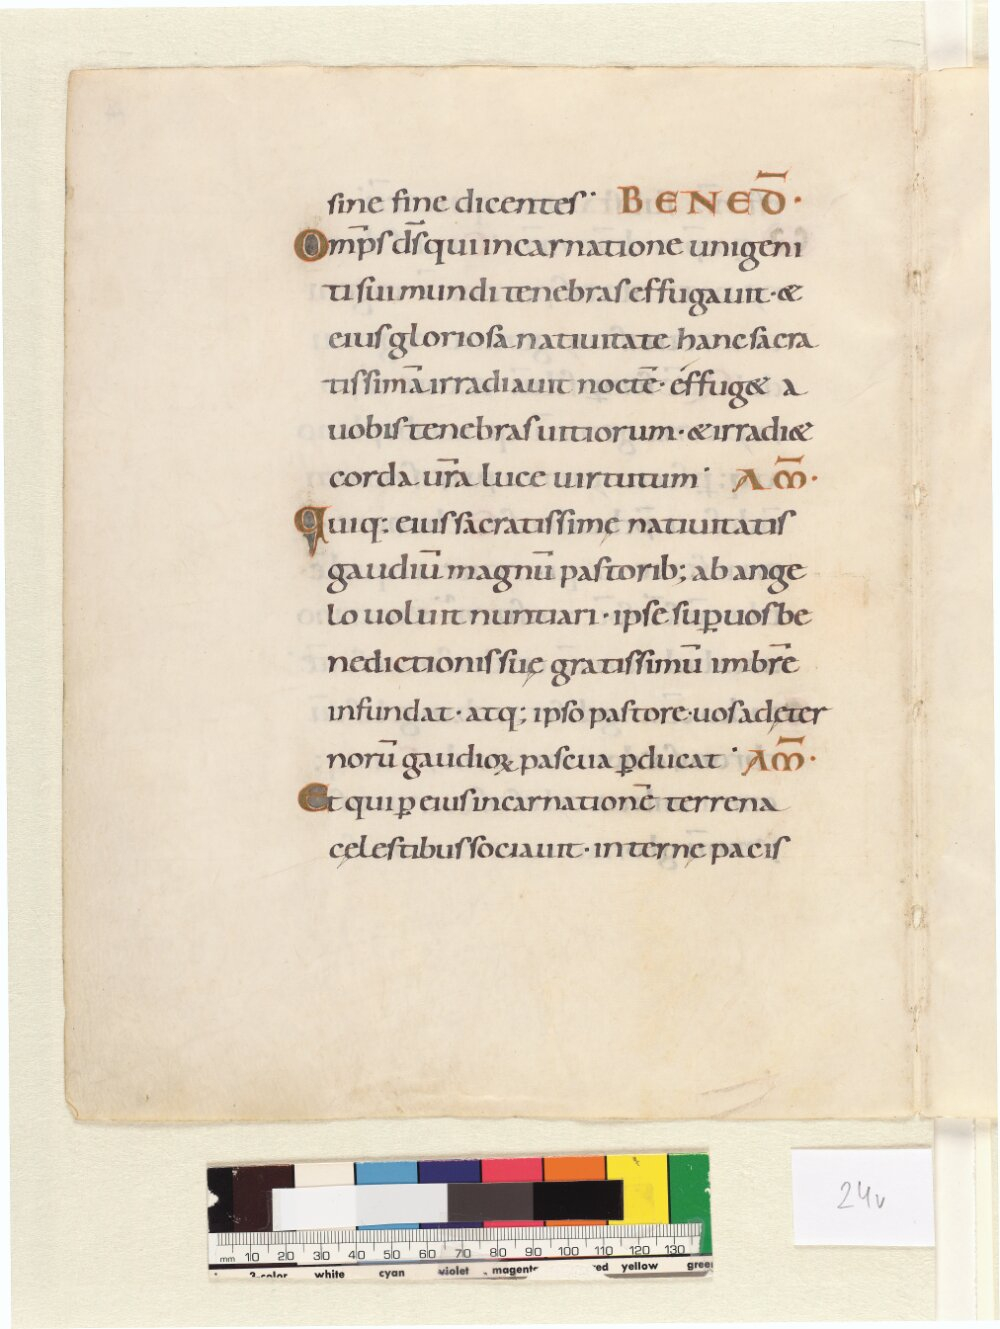 sine fine dicentes· BENED̄·
Om̄ps d̄s qui incarnatione unigeni
ti sui mundi tenebras effugauit· &
eius gloriosa natiuitate hanc sacra
tissimā irradiauit noctē· effug& a
uobis tenebras uitiorum· & irradi&
corda ur̄a luce uirtutum· AM̄·
Quiq: eius sacratissimę natiuitatis
gaudiū magnū pastorib; ab ange
lo uoluit nuntiari· ipse suꝑ uos be
nedictionis suę gratissimū imbrē
infundat· atq; ipso pastore· uos ad ęter
norū gaudioꝝ pascua ꝑducat· AM̄·
Et qui ꝑ eius incarnationē terrena
cęlestibus sociauit· internę pacis
24v
mm 10 20 30 40 50 60 70 80 90 100 110 120 130
3-color white cyan violet magent red yellow green